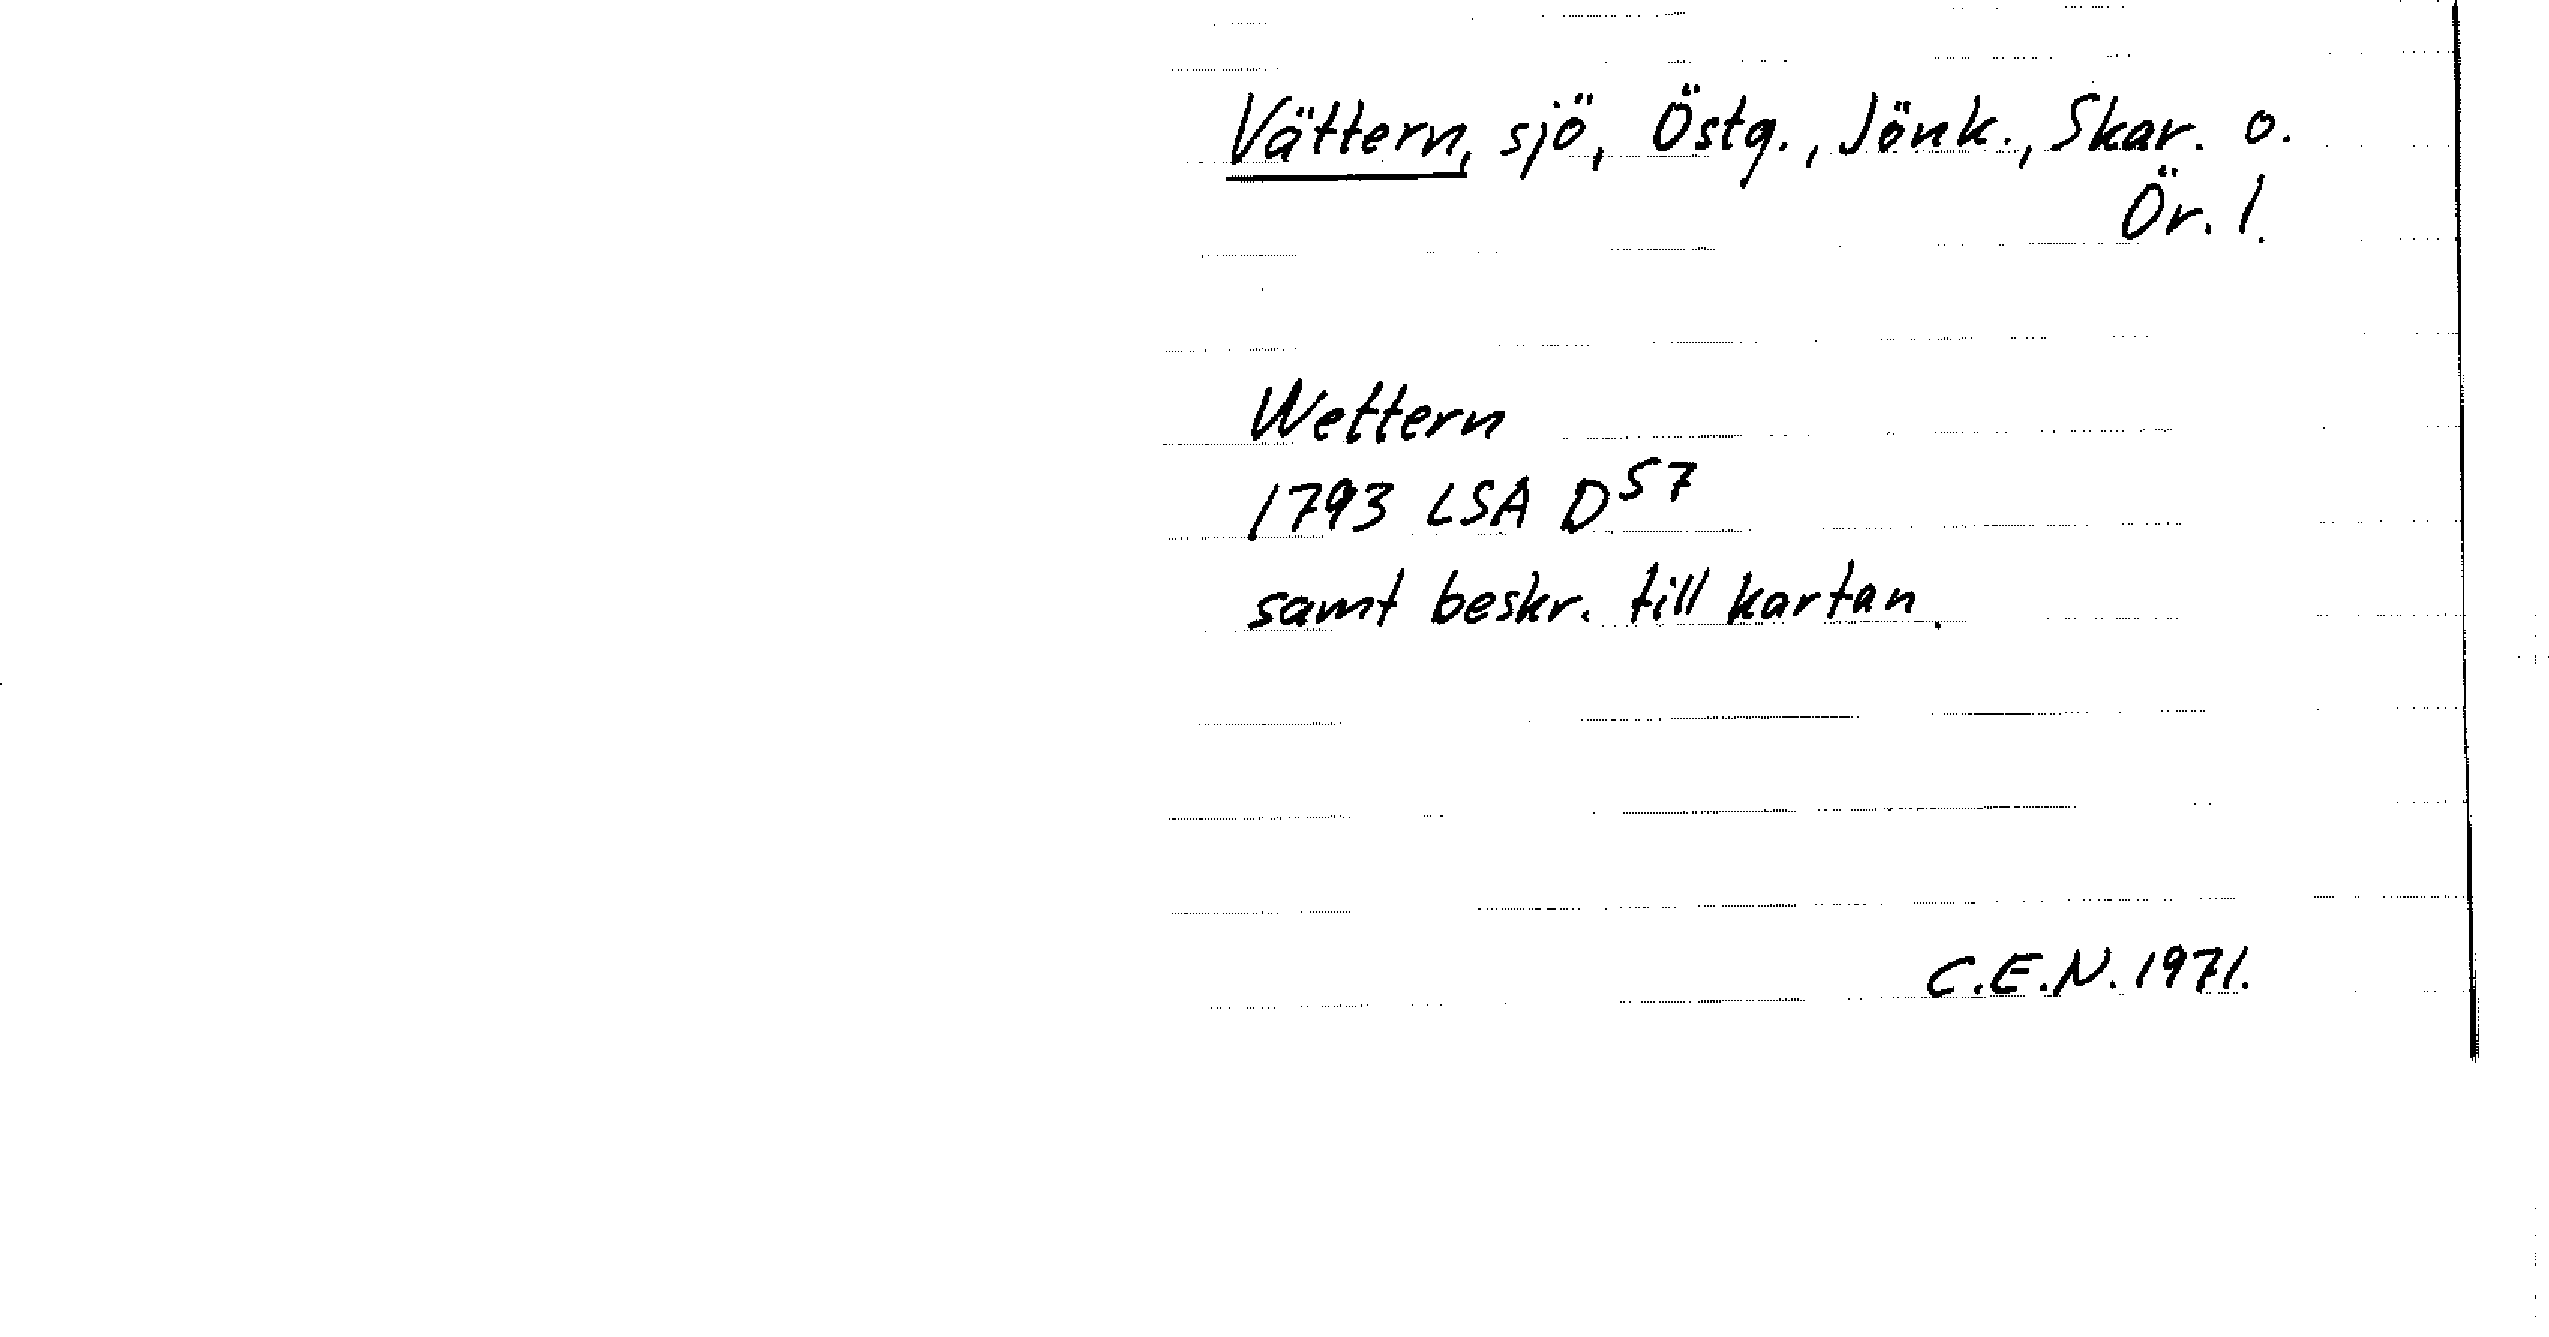 Vättern, sjö, Östg., Jönk., Skar. o.
Ör. l.
Wettern
1793 LSA D⁵⁷
samt beskr. till kartan.
C.E.N. 1971.